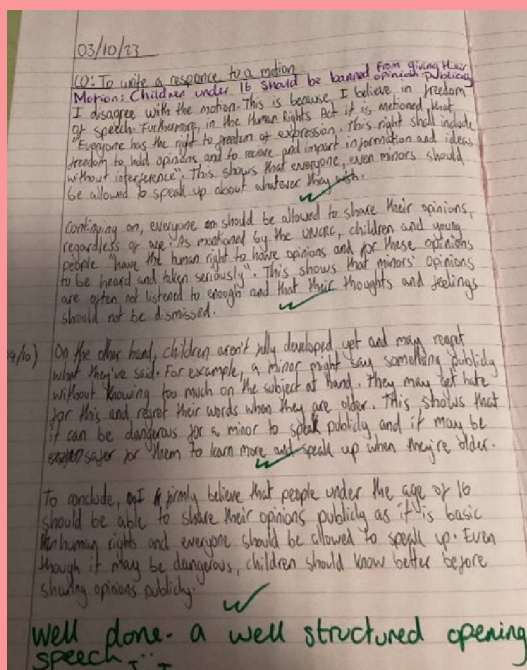 03/10/23
LO: To write a response to a motion
Motion: Children under 16 should be banned from giving their
opinions publicly
I disagree with the motion. This is because, I believe in freedom
of speech. Furthermore, in the Human Rights Act it is metioned, that
"Everyone has the right to freedom of expression. This right shall include
freedom to hold opinions and to recieve and impart information and ideas
without interference". This shows that everyone, even minors should
be allowed to speak up about whatever they wish.
Continuing on, everyone should be allowed to share their opinions,
regardless of age. As mentioned by the UNCRC, children and young
people "have the human right to have opinions and for these opinions
to be heard and taken seriously". This shows that minors' opinions
are often not listened to enough and that their thoughts and feelings
should not be dismissed.
/10) On the other hand, children aren't fully developed yet and may regret
what they've said. For example, a minor might say something publicly
without knowing too much on the subject at hand. They may get hate
for this and regret their words when they are older. This shows that
it can be dangerous for a minor to speak publicly and it may be
safer for them to learn more and speak up when they're older.
To conclude, I firmly believe that people under the age of 16
should be able to share their opinions publicly as it is basic
human rights and everyone should be allowed to speak up. Even
though it may be dangerous, children should know better before
sharing opinions publicly.
Well done - a well structured opening
speech